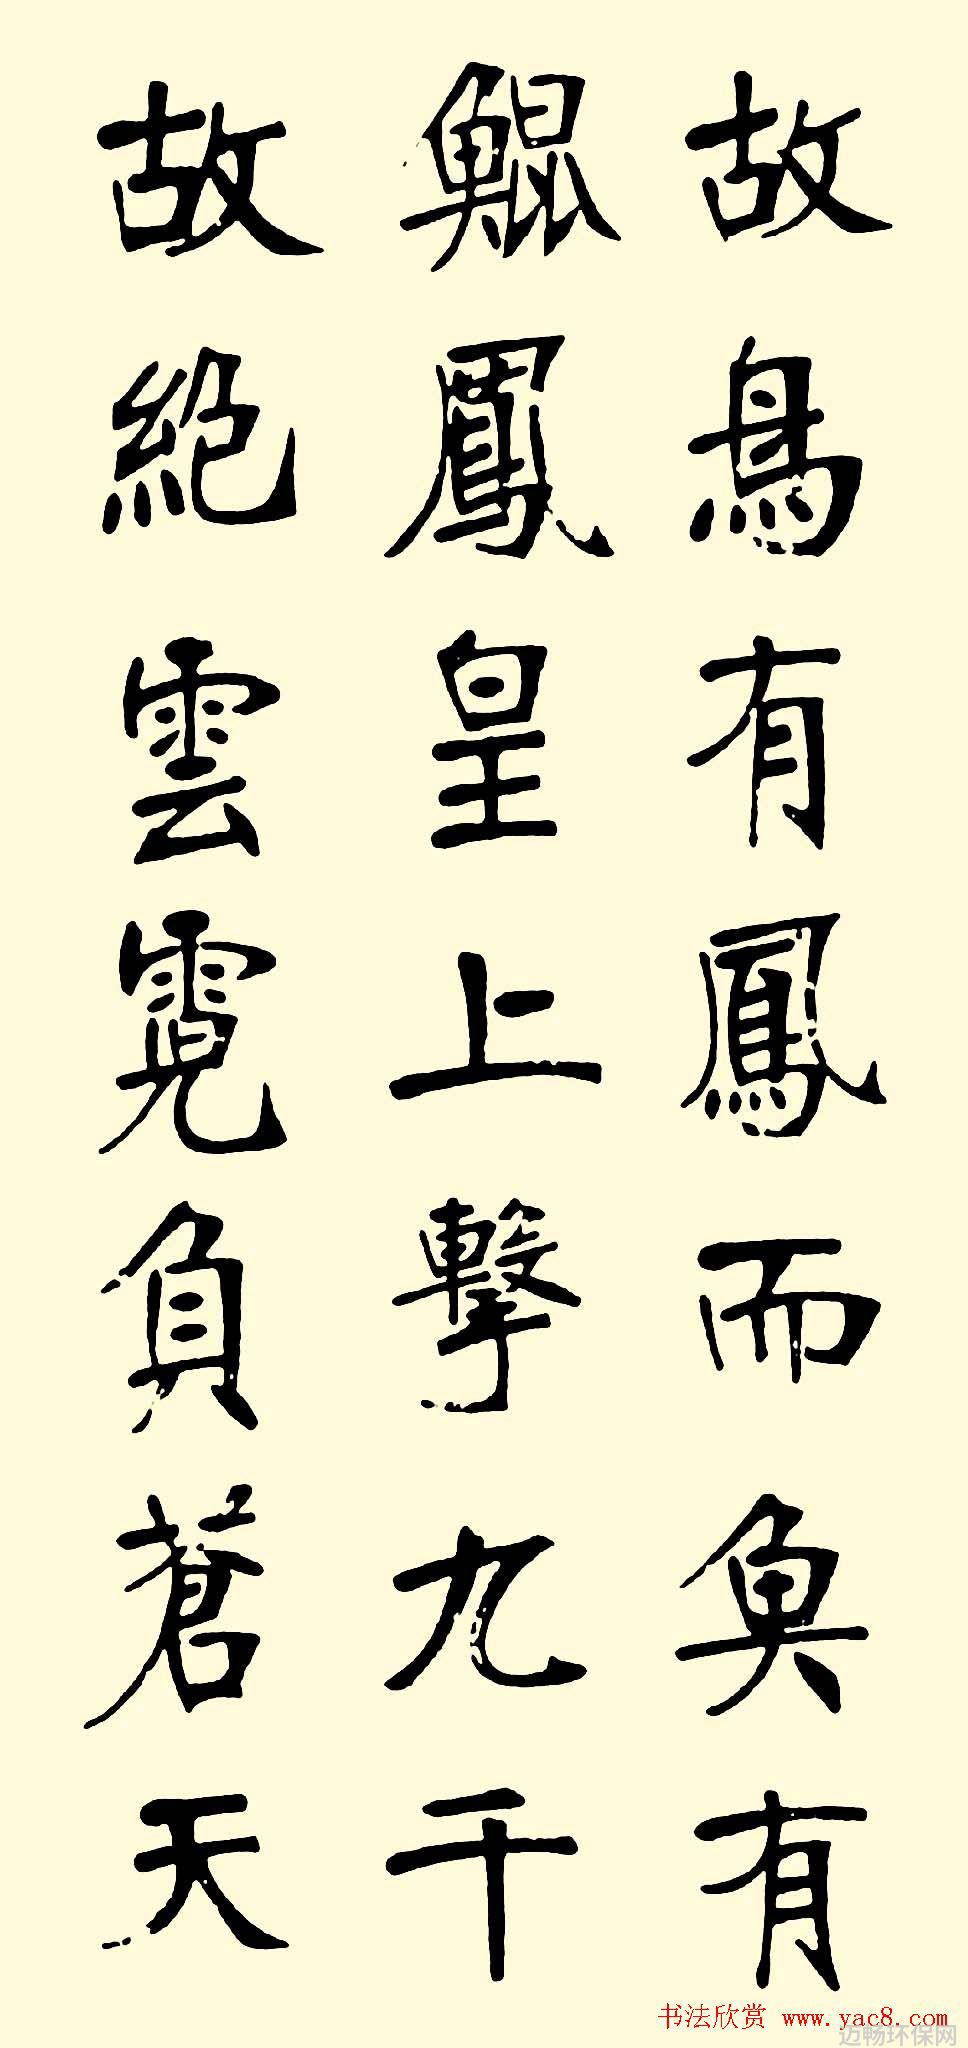 故鳥有鳳而魚有
鯤鳳皇上擊九千
故絕雲霓負蒼天
书法欣赏 www.yac8.com
迈畅环保网